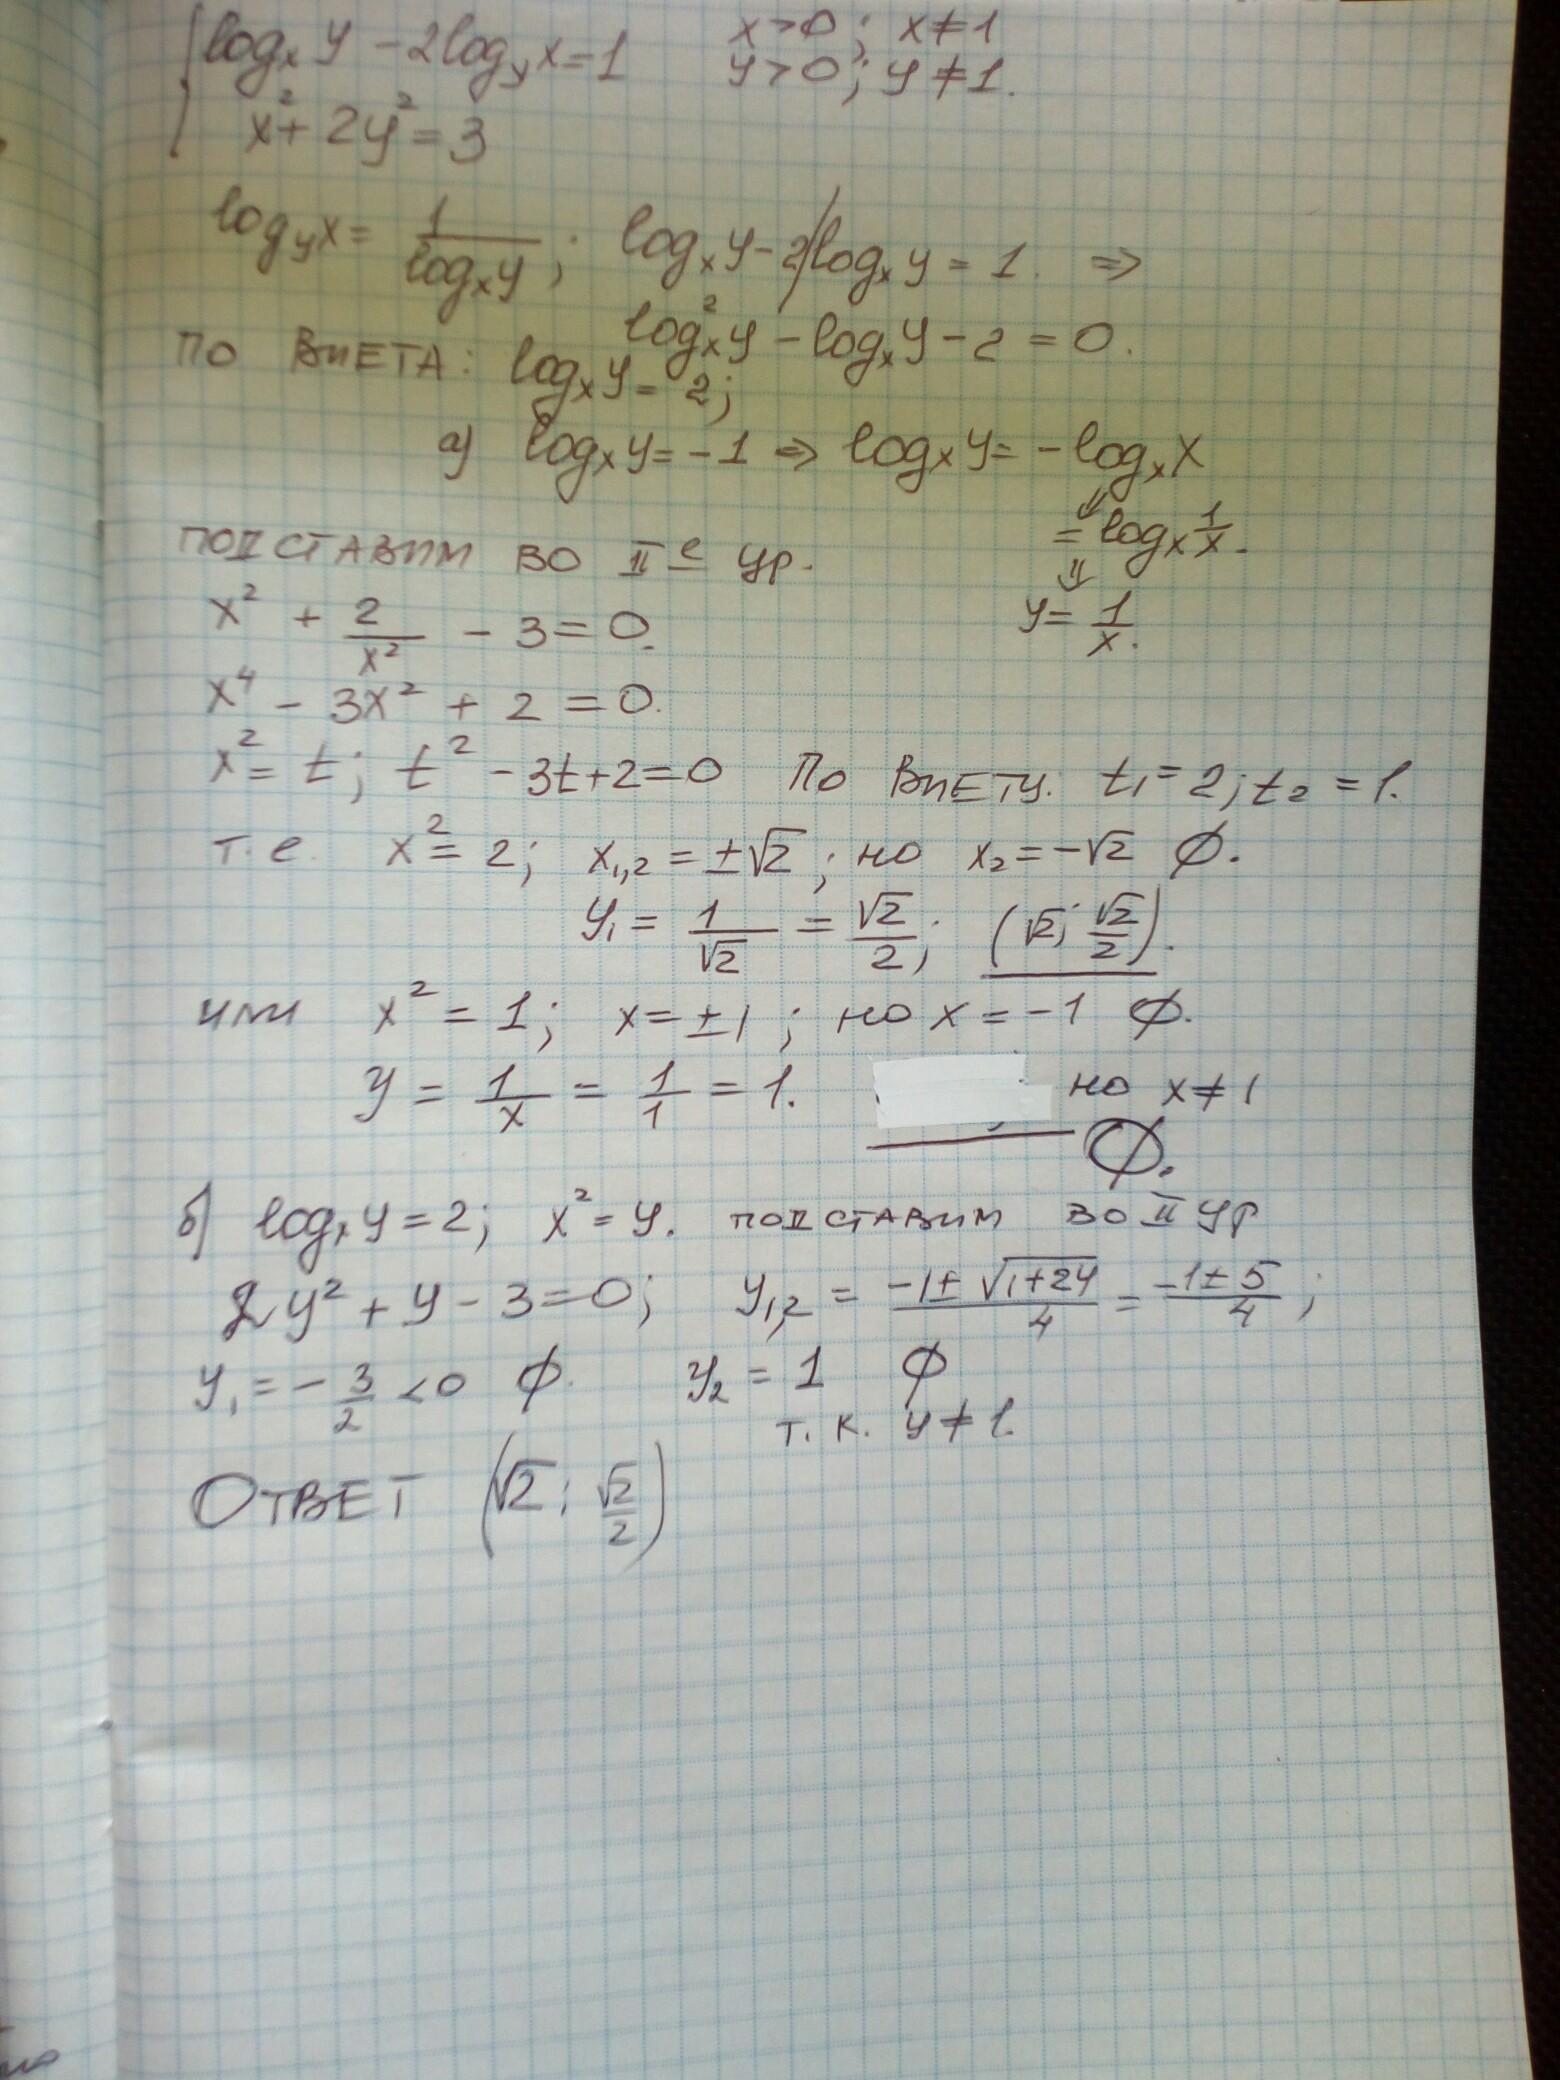 log_x y - 2log_y x = 1 x > 0; x ≠ 1
y > 0; y ≠ 1.
x² + 2y² = 3
log_y x = 1/log_x y; log_x y - 2/log_x y = 1. ⇒
log²_x y - log_x y - 2 = 0.
ПО ВИЕТА: log_x y = 2;
а) log_x y = -1 ⇒ log_x y = - log_x x
= log_x 1/x.
ПОДСТАВИМ ВО IIе УР. ⇓
y = 1/x.
x² + 2/x² - 3 = 0.
x⁴ - 3x² + 2 = 0.
x² = t; t² - 3t + 2 = 0 ПО ВИЕТУ. t₁ = 2; t₂ = 1.
т.е. x² = 2; x₁,₂ = ±√2; но x₂ = -√2 ∅.
y₁ = 1/√2 = √2/2; (√2; √2/2).
или x² = 1; x = ±1; но x = -1 ∅.
y = 1/x = 1/1 = 1. но x ≠ 1
∅.
б) log_x y = 2; x² = y. ПОДСТАВИМ ВО II УР
2y² + y - 3 = 0; y₁,₂ = (-1 ± √(1+24))/4 = (-1 ± 5)/4;
y₁ = - 3/2 < 0 ∅. y₂ = 1 ∅
т.к. y ≠ 1.
ОТВЕТ (√2; √2/2)